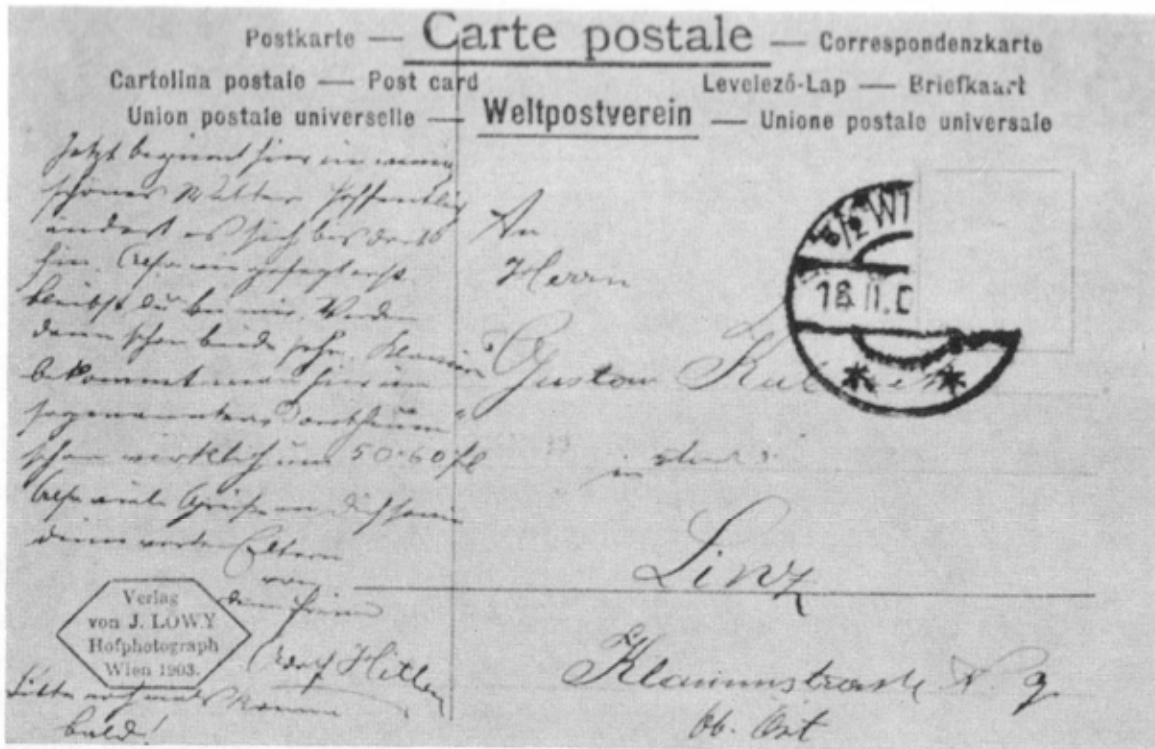 Postkarte — Carte postale — Correspondenzkarte
Cartolina postale — Post card Levelező-Lap — Briefkaart
Union postale universelle — Weltpostverein — Unione postale universale
Jetzt beginnt hier ein wenig
schönes Wetter hoffentlich
ändert es sich bis
hin. Also wie gesagt erst
bleibst du bei mir. Werden
dann schon beide sehn. Klavier
bekommt man hier im
sogenannten Dorotheum
schon wirklich um 50-60 fl
Also viele Grüße an Dich
deine werten Eltern
von
Freund
Adolf Hitler
Bitte nochmals komme
bald!
Verlag
von J. LÖWY
Hofphotograph
Wien 1903.
An
Herrn
Gustav
in
Linz
Ob. Öst
WI
18 II. 0